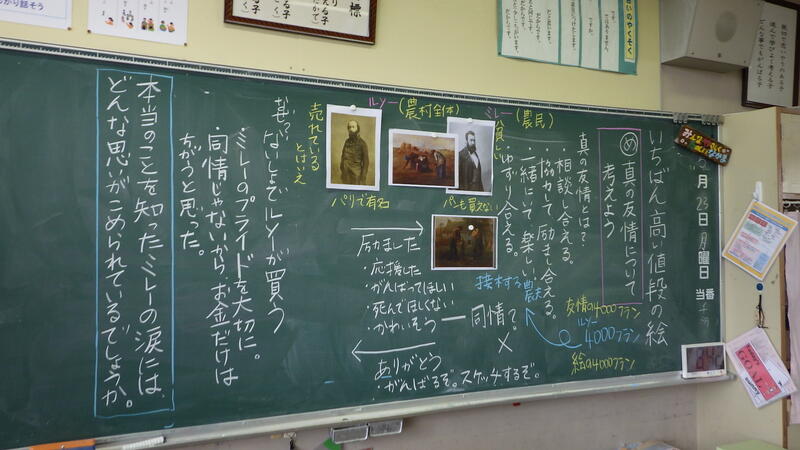 月23日月曜日
当番
みんなで
いちばん高い値段の絵
め 真の友情について
考えよう
真の友情とは?
・相談し合える。
・協力して励まし合える。
・一緒にいて楽しい
・ゆずり合える。
ミレー(農民)
貧しい
パンも買えない
ルソー(農村全体)
売れている
とはいえ
パリで有名
接木する農夫
友情の4000フラン
ルソー
4000フラン
絵の4000フラン
励ました
・応援した
・がんばってほしい
・死んでほしくない
・かわいそう
同情?
×
ありがとう
・がんばるぞ。スケッチするぞ。
ないしょでルソーが買う
・ミレーのプライドを大切に。
・同情じゃないから、お金だけは
ちがうと思った。
本当のことを知ったミレーの涙には、
どんな思いがこめられているでしょうか。
GOAL
標